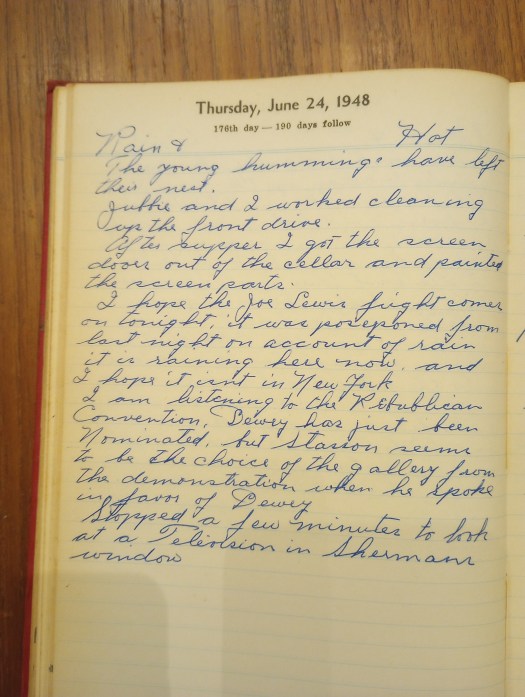 Thursday, June 24, 1948
176th day — 190 days follow
Rain & Hot
The young hummings have left
their nest.
Jubbie and I worked cleaning
up the front drive.
After supper I got the screen
doors out of the cellar and painted
the screen parts.
I hope the Joe Lewis fight comes
on tonight, it was posponed from
last night on account of rain
it is raining here now, and
I hope it isnt in New York
I am listening to the Republican
Convention, Dewey has just been
Nominated, but Stasson seems
to be the choice of the gallery from
the demonstration when he spoke
in favor of Dewey
Stopped a few minutes to look
at a Television in Shermans
window